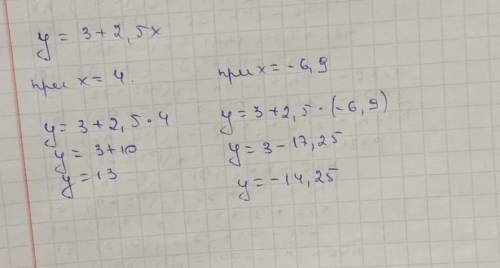 y = 3 + 2,5x
при x = 4.
y = 3 + 2,5 · 4
y = 3 + 10
y = 13
при x = -6,9
y = 3 + 2,5 · (-6,9)
y = 3 - 17,25
y = -14,25